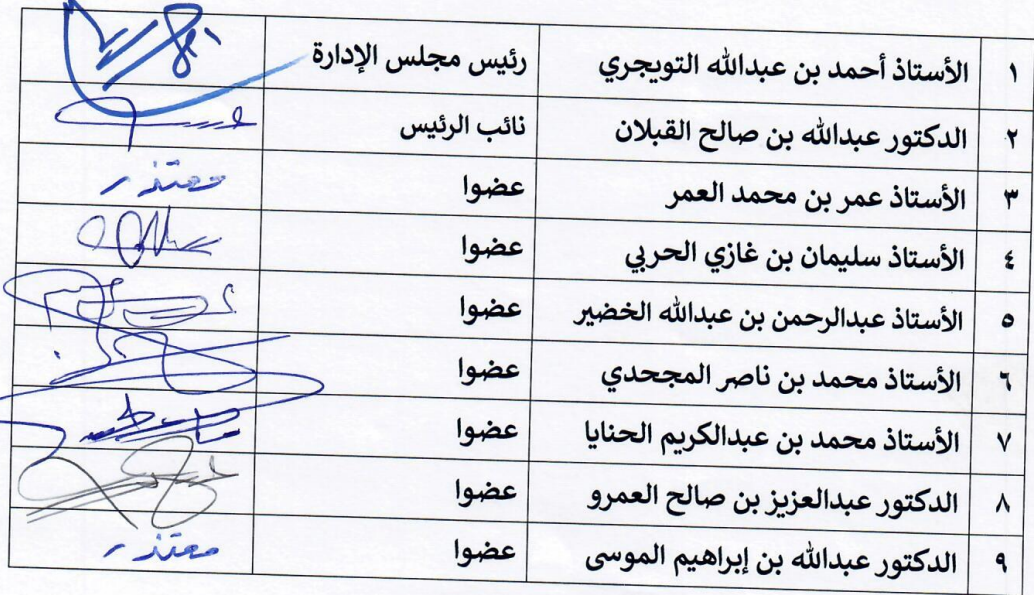 ١ الأستاذ أحمد بن عبدالله التويجري رئيس مجلس الإدارة
٢ الدكتور عبدالله بن صالح القبلان نائب الرئيس
٣ الأستاذ عمر بن محمد العمر عضوا معتذر
٤ الأستاذ سليمان بن غازي الحربي عضوا
٥ الأستاذ عبدالرحمن بن عبدالله الخضير عضوا
٦ الأستاذ محمد بن ناصر المجحدي عضوا
٧ الأستاذ محمد بن عبدالكريم الحنايا عضوا
٨ الدكتور عبدالعزيز بن صالح العمرو عضوا
٩ الدكتور عبدالله بن إبراهيم الموسى عضوا معتذر